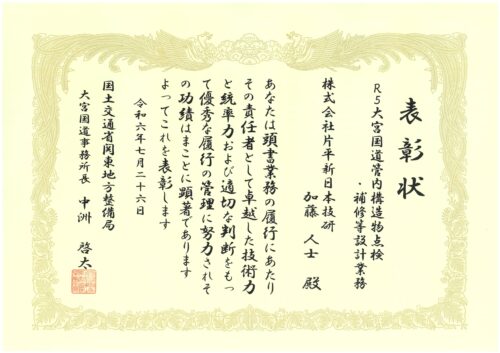 表彰状
R5大宮国道管内構造物点検
・補修等設計業務
株式会社片平新日本技研
加藤 人士 殿
あなたは頭書業務の履行にあたり
その責任者として卓越した技術力
と統率力および適切な判断をもっ
て優秀な履行の管理に努力されそ
の功績はまことに顕著であります
よってこれを表彰します
令和六年七月二十六日
国土交通省関東地方整備局
大宮国道事務所長 中洲 啓太